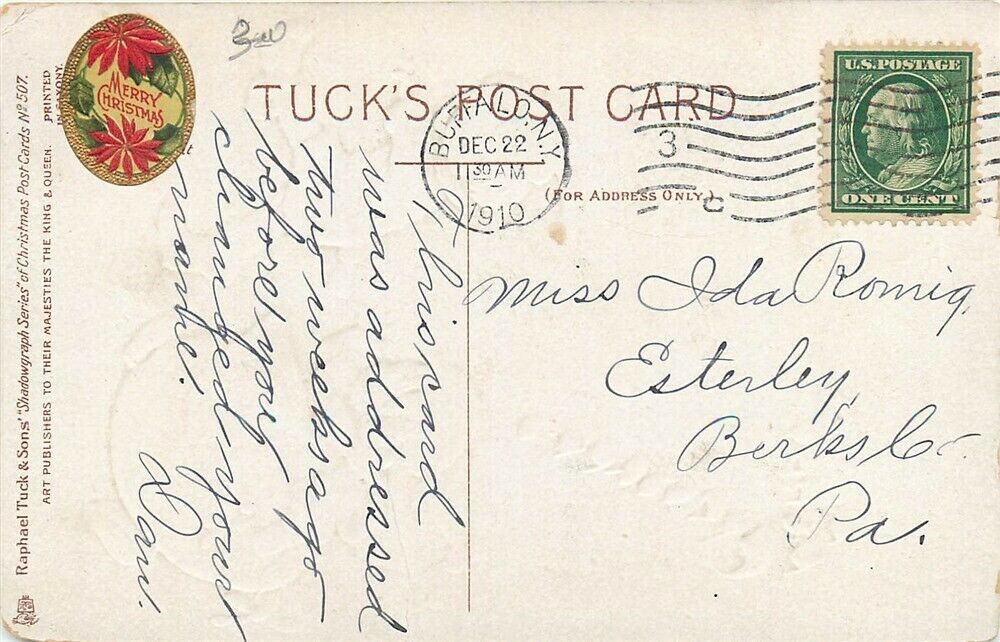 3.00
MERRY
CHRISTMAS
TUCK'S POST CARD
(FOR ADDRESS ONLY.)
BUFFALO, N.Y.
DEC 22
11 30 AM
1910
3
C
U.S. POSTAGE
ONE CENT
This card
was addressed
two weeks ago
before you
changed your
name!
Dan.
Miss Ida Romig,
Esterley,
Berks Co.
Pa.
Raphael Tuck & Sons' "Shadowgraph Series" of Christmas Post Cards No 507.
ART PUBLISHERS TO THEIR MAJESTIES THE KING & QUEEN.
PRINTED
IN SAXONY.